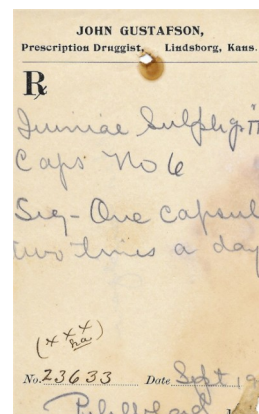 JOHN GUSTAFSON,
Prescription Druggist, Lindsborg, Kans.
℞
Sulph gr ii
Caps No 6
Sig - One capsul
two times a day
(+++
No. 23633 Date Sept 19